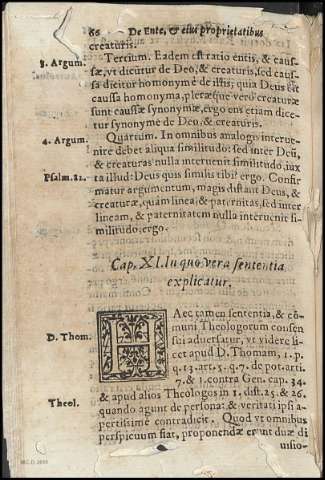 60 De Ente, & eius proprietatibus
creaturis.
3. Argum. Tertium. Eadem est ratio entis, & caus-
sæ, vt dicitur de Deo, & creaturis, sed caus-
sa dicitur homonyme de illis; quia Deus est
caussa homonyma, pleræque verò creaturæ
sunt caussæ synonymæ, ergo ens etiam dici-
tur synonyme de Deo, & creaturis.
4. Argum. Quartum. In omnibus analogis interue-
nire debet aliqua similitudo: sed inter Deũ,
& creaturas nulla interuenit similitudo, iux
Psalm. 82. ta illud: Deus quis similis tibi? ergo. Confir
matur argumentum, magis distant Deus, &
creaturæ, quàm linea, & paternitas, sed inter
lineam, & paternitatem nulla interuenit si-
militudo, ergo.
Cap. XI. In quo vera sententia
explicatur.
HAec tamen sententia, & cõ-
muni Theologorum consen
D. Thom. sui aduersatur, vt videre li-
cet apud D. Thomam, 1. p.
q. 13. art. 5. q. 7. de pot. arti.
7. & 1. contra Gen. cap. 34.
Theol. & apud alios Theologos in 1. dist. 25. & 26.
quando agunt de persona: & veritati ipsi a-
pertissimè contradicit. Quod vt omnibus
perspicuum fiat, proponendæ erunt duæ di
uisio-